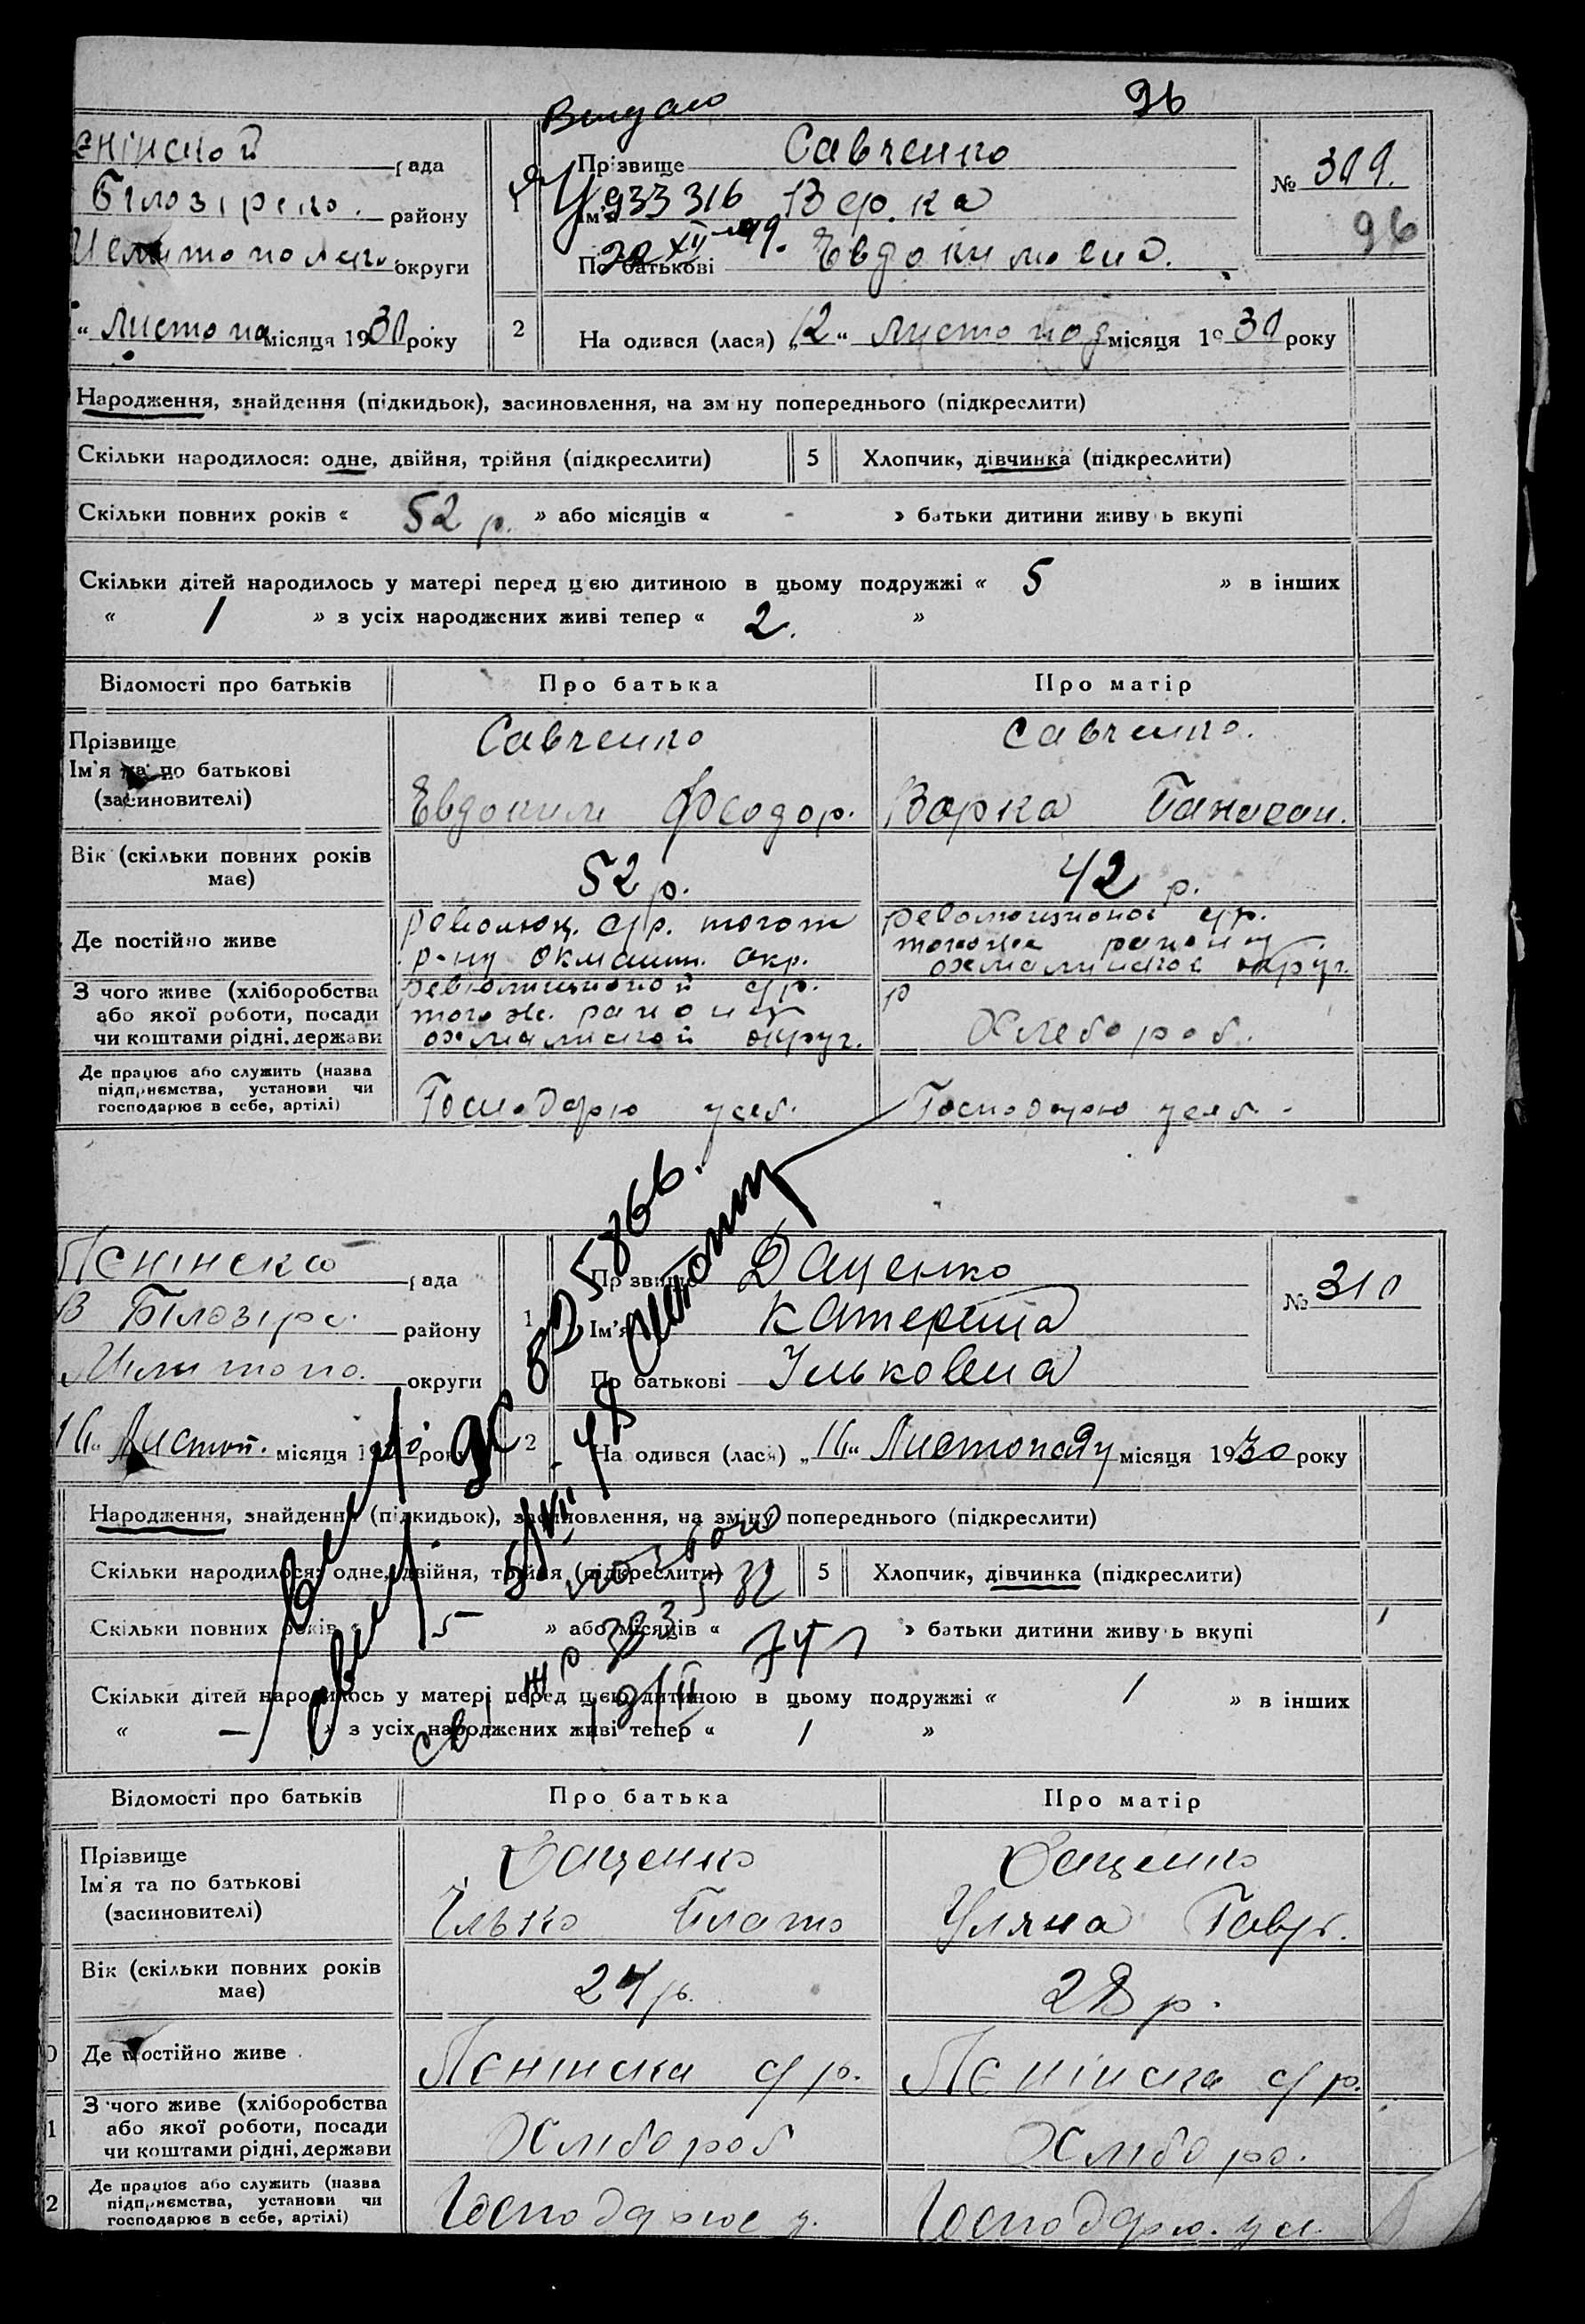 96
Видано
єнінской рада
Білозірско. району
округи
" Листопа місяця 1930 року
1
Прізвище Савченко
Ім'я Варка
У 933316
22 XII-49.
По батькові Евдокимовна.
№ 309.
96
2
На одився (лася) „12" Листопад місяця 1930 року
Народження, знайдення (підкидьок), засиновлення, на зм ну попереднього (підкреслити)
Скільки народилося: одне, двійня, трійня (підкреслити) 5 Хлопчик, дівчинка (підкреслити)
Скільки повних років « 52 р. » або місяців « - » батьки дитини живу ь вкупі
Скільки дітей народилось у матері перед цією дитиною в цьому подружжі « 5 » в інших
« 1 » з усіх народжених живі тепер « 2. »
Відомості про батьків Про батька Про матір
Прізвище Савченко Савченко.
Ім'я та по батькові
(засиновителі) Евдоким Феодор. Варка Панасан.
Вік (скільки повних років має) 52 р. 42 р.
Де постійно живе
революц. с/р. тогож революционой с/р.
р-ну округ. тогоже району
З чого живе (хліборобства революционой с/р.
або якої роботи, посади тогож. району Хлебороб.
чи коштами рідні, держави округ.
Де працює або служить (назва
підприємства, установи чи
господарює в себе, артілі) Господарю усеб. Господарю усеб.
Ленінска рада
В Білозірс. району
Мелитопо. округи
16" Листоп. місяця 1930 року
1
Пр звище Даценко
Ім'я Катерина
По батькові Ільковна
№ 310
825866.
2
На одився (лася) „16" Листопаду місяця 1930 року
Народження, знайдення (підкидьок), засиновлення, на зміну попереднього (підкреслити)
Скільки народилося: одне, двійня, трійня (підкреслити) 5 Хлопчик, дівчинка (підкреслити)
Скільки повних років « 5 » або місяців « » батьки дитини живу ь вкупі
Скільки дітей народилось у матері перед цією дитиною в цьому подружжі « 1 » в інших
« — » з усіх народжених живі тепер « 1 »
Відомості про батьків Про батька Про матір
Прізвище Даценко Даценко
Ім'я та по батькові
(засиновителі) Ілько Плато Уляна Гавр.
Вік (скільки повних років має) 24 р. 28 р.
Де постійно живе Ленінска с/р. Ленінска с/р.
З чого живе (хліборобства
або якої роботи, посади
чи коштами рідні, держави Хлібороб Хліборо.
Де працює або служить (назва
підприємства, установи чи
господарює в себе, артілі) Господарює у. Господарю. у се